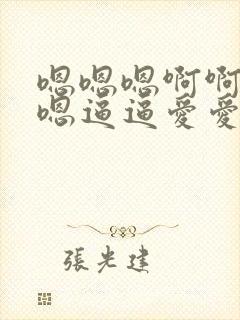 嗯嗯嗯啊啊
嗯逼逼爱爱
張光建